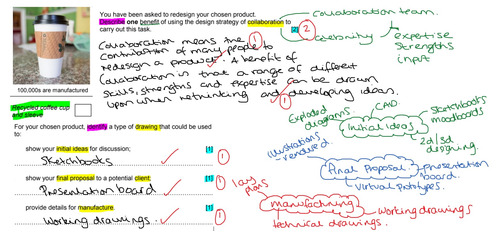 You have been asked to redesign your chosen product.
Describe one benefit of using the design strategy of collaboration to
carry out this task. [2] 2
Collaboration means the 1
contribution of many people to
redesign a product. A benefit of
Collaboration is that a range of different
skills, strengths and expertise can be drawn
upon when rethinking and developing ideas.
1
100,000s are manufactured
Recycled coffee cup
and sleeve
For your chosen product, identify a type of drawing that could be used
to:
show your initial ideas for discussion; [1]
Sketchbooks 1
show your final proposal to a potential client; [1]
Presentation board 1
provide details for manufacture. [1]
Working drawings. 1
Collaboration team.
expertise
strengths
input
Exploded
diagrams
CAD.
Sketchbooks
moodboards
initial ideas
2d/3d
designing
illustrations
rendered.
final proposal
presentation
board.
virtual prototypes.
manufacturing
working drawings
technical drawings.